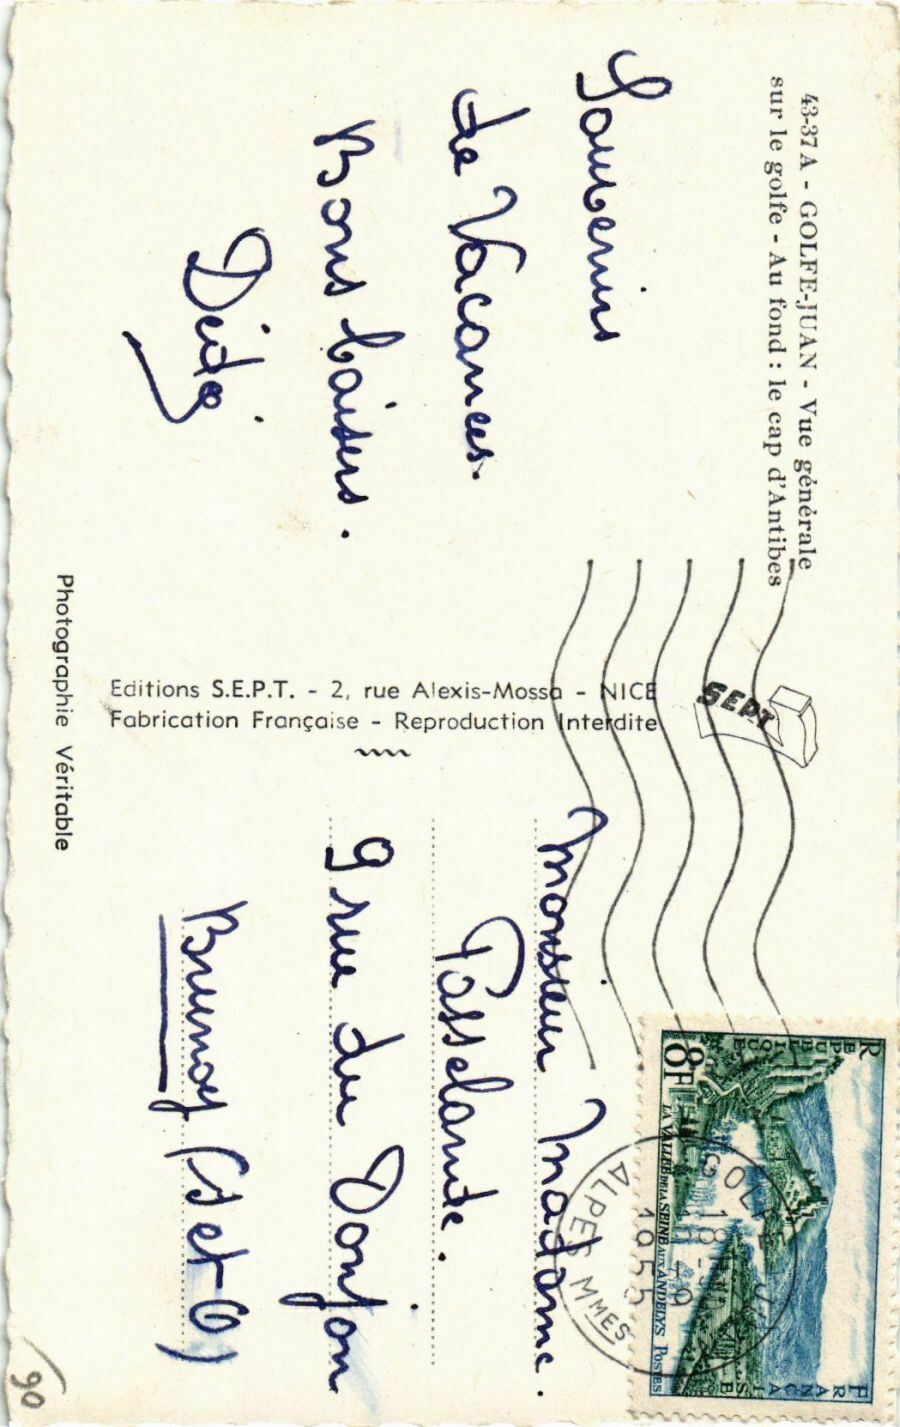 43-37 A - GOLFE-JUAN - Vue générale
sur le golfe - Au fond : le cap d'Antibes
Souvenirs
de Vacances.
Bons baisers.
Dédé
Editions S.E.P.T. - 2, rue Alexis-Mossa - NICE
Fabrication Française - Reproduction Interdite
Photographie Véritable
SEPT
REPUBLIQUE
FRANCAISE
8F
LA VALLEE DE LA SEINE AUX ANDELYS POSTES
18
1955
ALPES MMES
Monsieur Madame.
Passelande.
9 rue du Donjon
Brunoy (S et O)
90